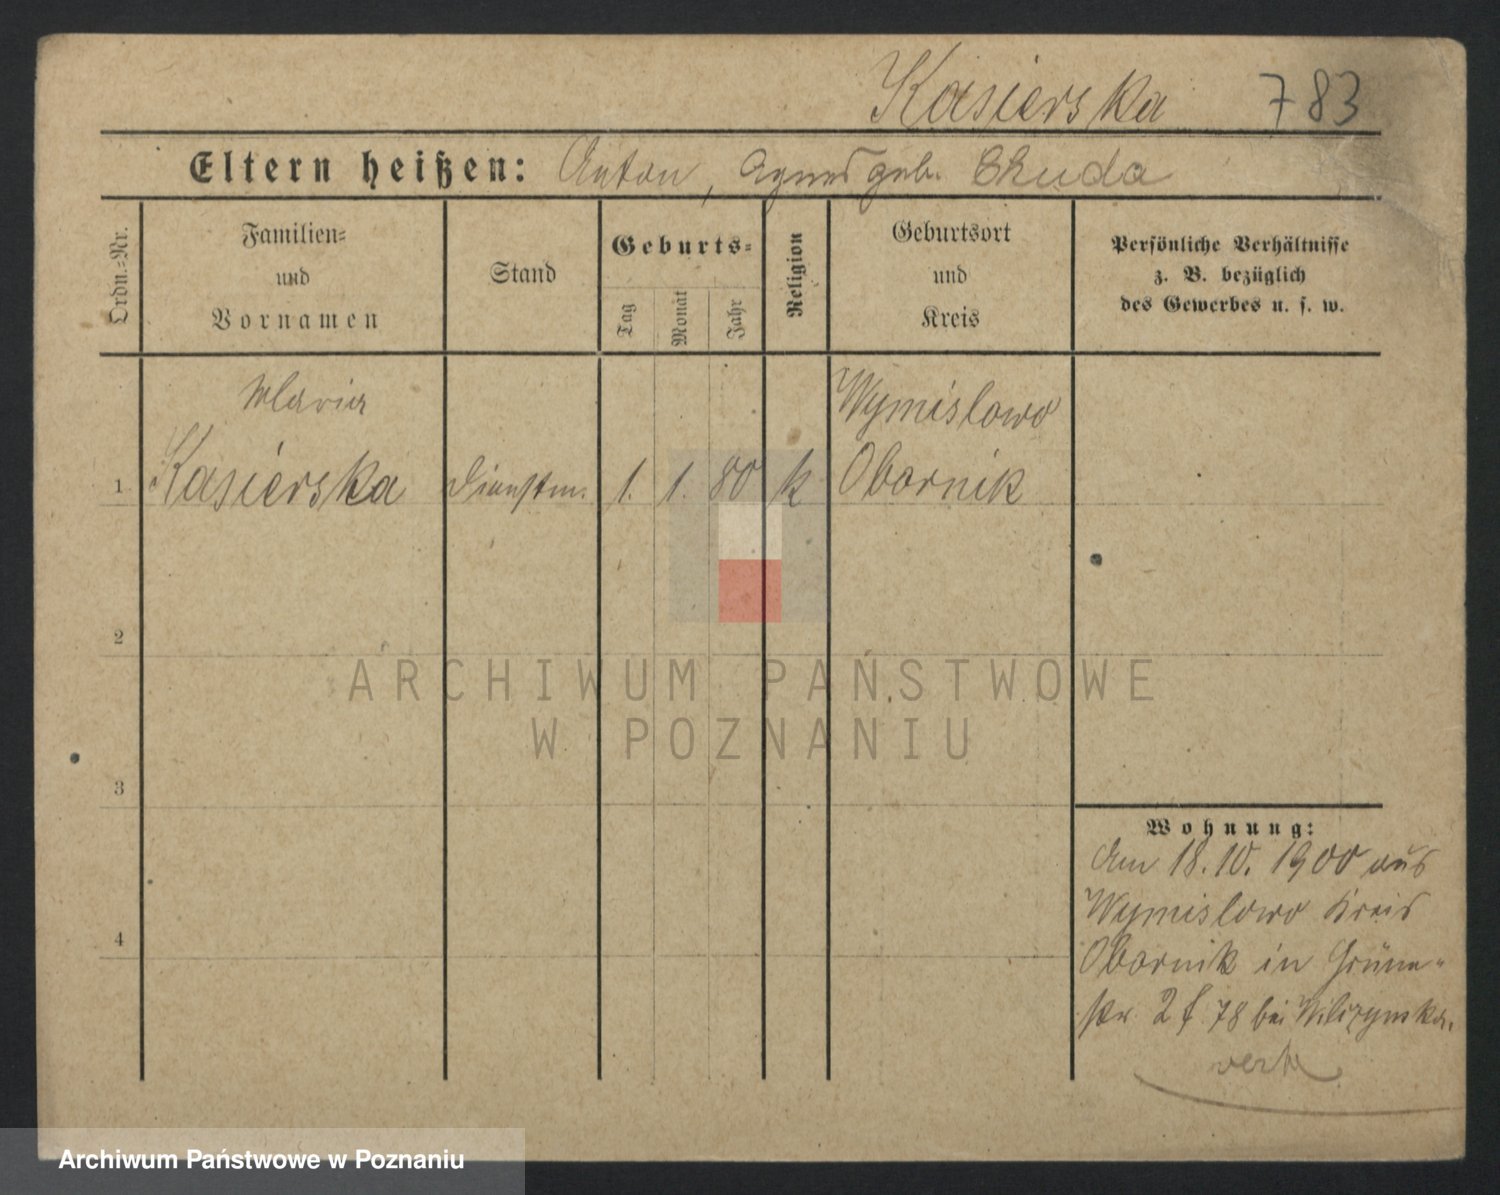 Kasierska 783
Eltern heißen: Anton, Agnes geb. Chuda
Ordn.-Nr.
Familien-
und
Vornamen
Stand
Geburts-
Tag
Monat
Jahr
Religion
Geburtsort
und
Kreis
Persönliche Verhältnisse
z. B. bezüglich
des Gewerbes u. s. w.
Maria
Wymislowo
1 Kasierska Dienstm. 1. 1. 80 k Obornik
2
ARCHIWUM PAŃSTWOWE
W POZNANIU
3
4
Wohnung:
Am 18.10.1900 aus
Wymislowo Kreis
Obornik in Grüne-
str. 2 f 78 bei
Archiwum Państwowe w Poznaniu